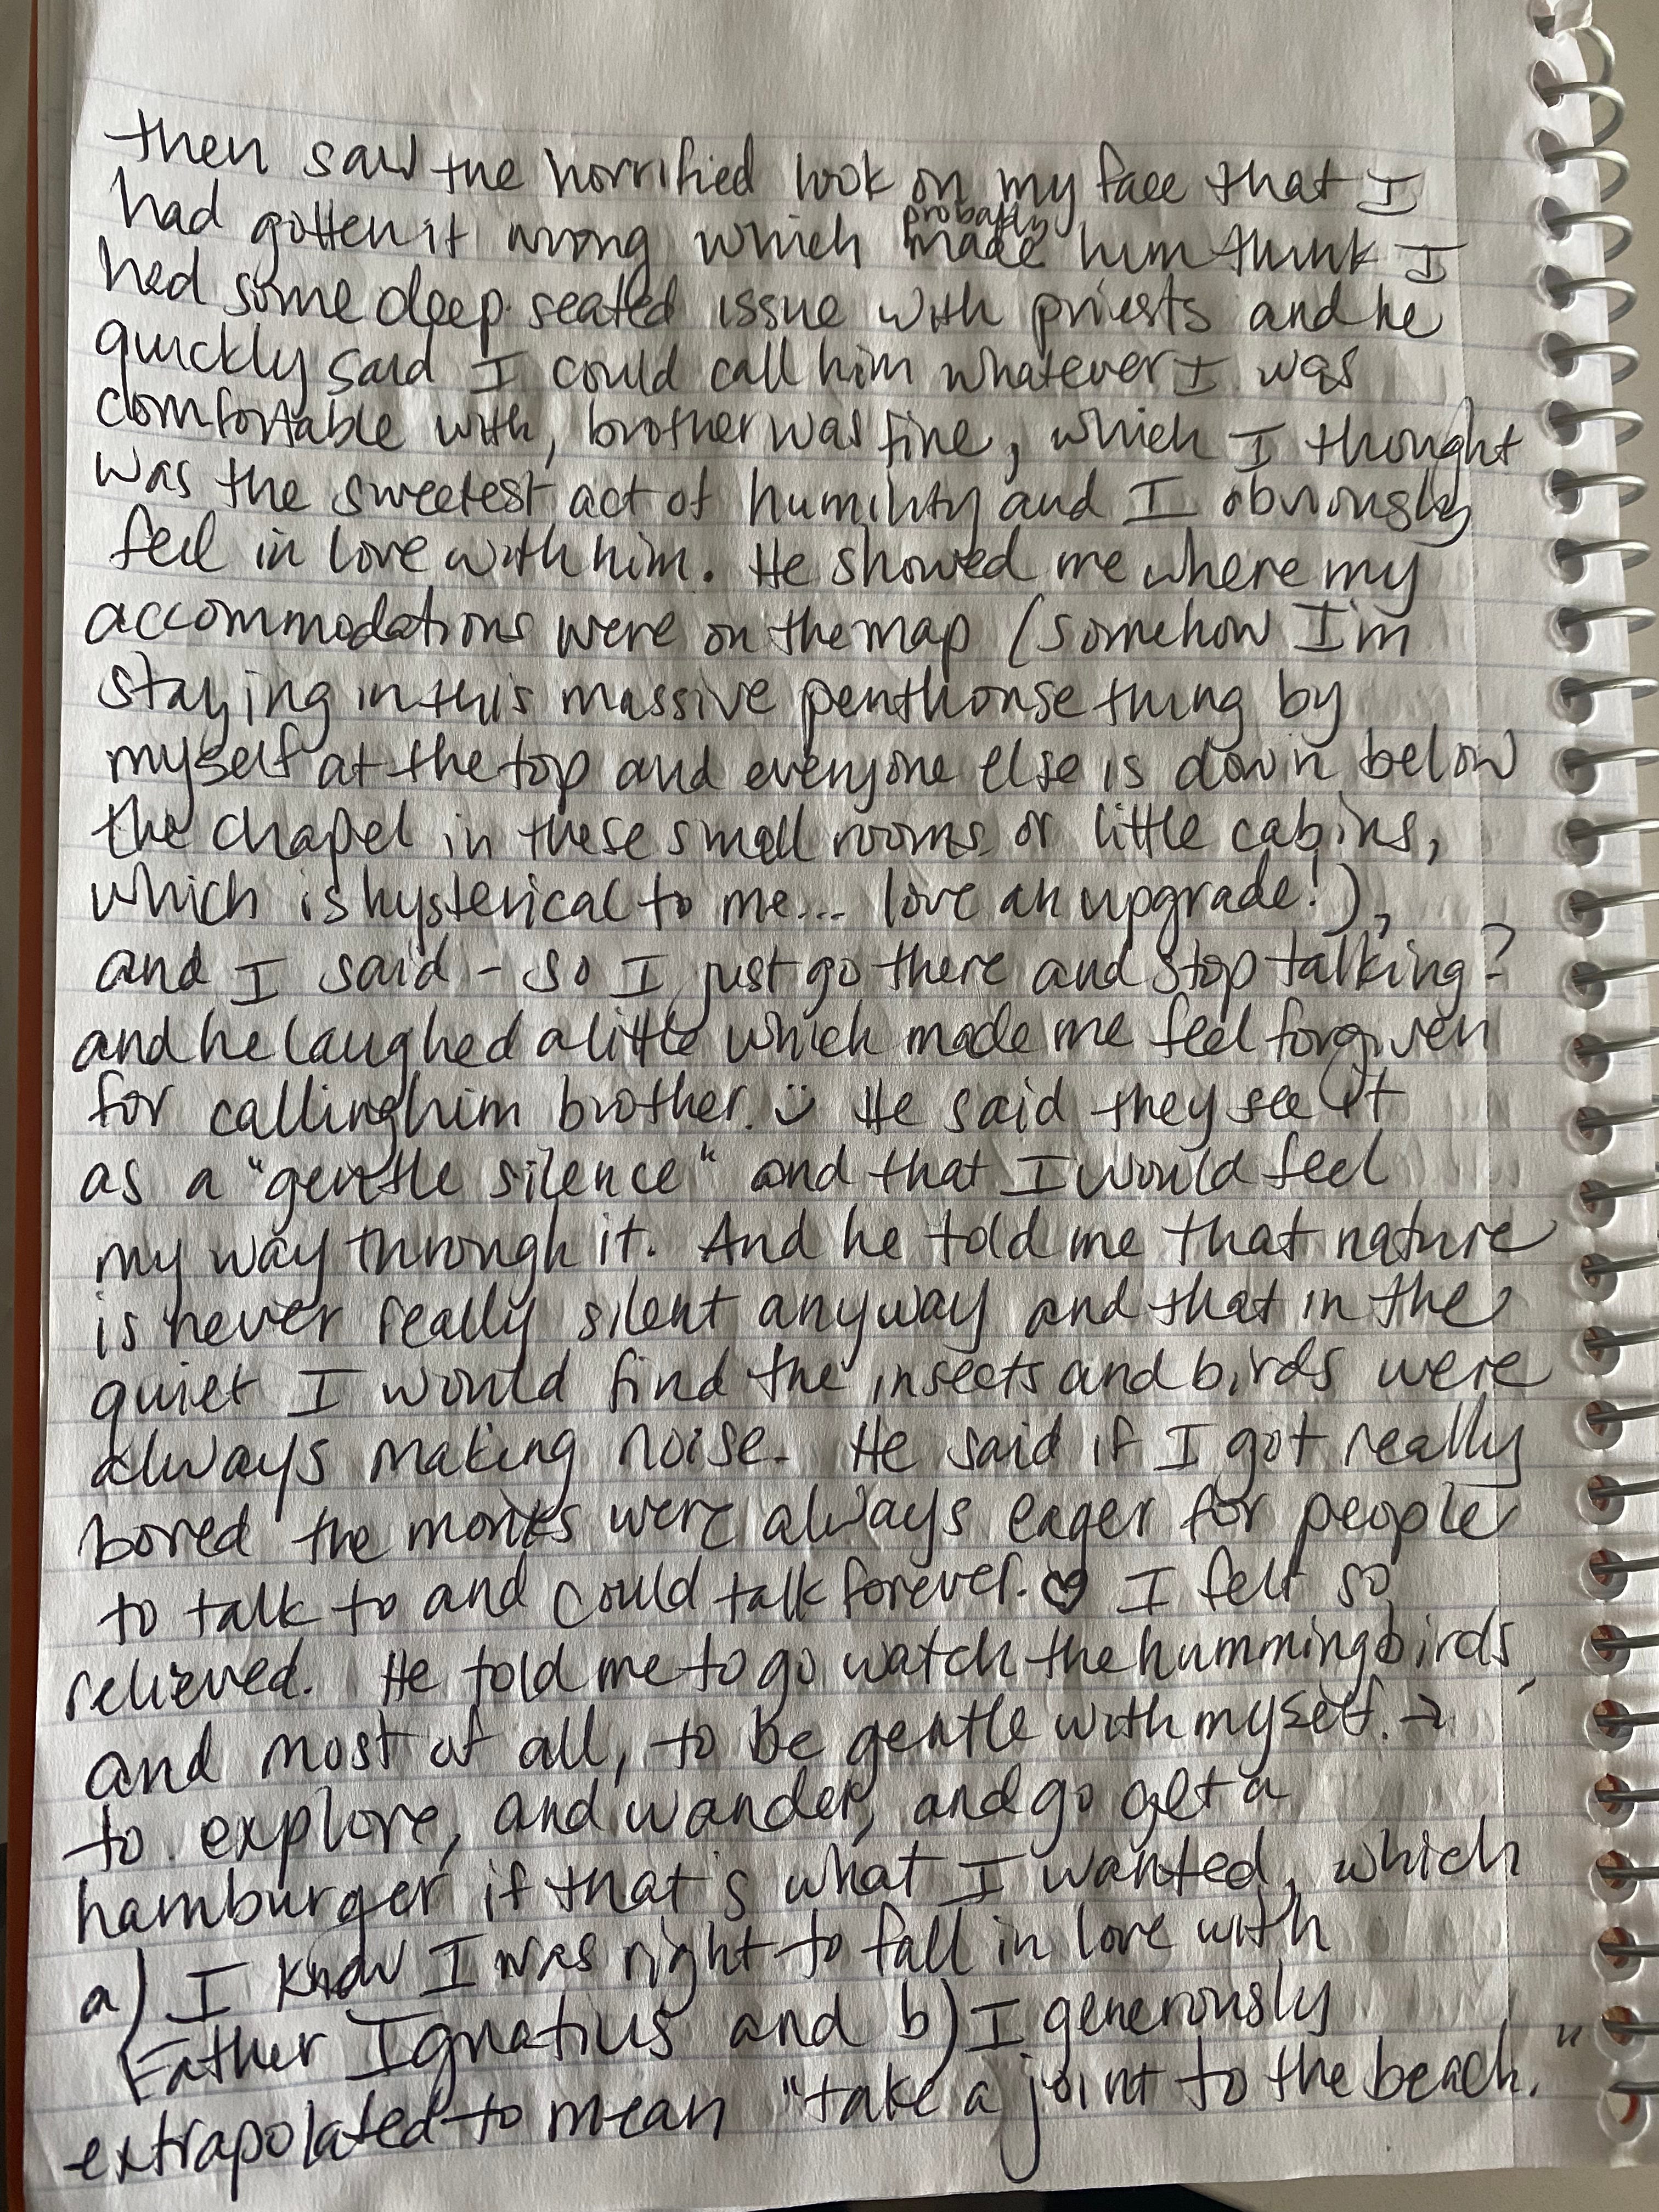 then saw the horrified look on my face that I
had gotten it wrong which probably made him think I
had some deep-seated issue with priests and he
quickly said I could call him whatever I was
comfortable with, brother was fine, which I thought
was the sweetest act of humility and I obviously
fell in love with him. He showed me where my
accommodations were on the map (somehow I'm
staying in this massive penthouse thing by
myself at the top and everyone else is down below
the chapel in these small rooms or little cabins,
which is hysterical to me... love an upgrade!),
and I said - so I just go there and stop talking?
and he laughed a little which made me feel forgiven
for calling him brother. ü He said they see it
as a "gentle silence" and that I would feel
my way through it. And he told me that nature
is never really silent anyway and that in the
quiet I would find the insects and birds were
always making noise. He said if I got really
bored the monks were always eager for people
to talk to and could talk forever. ♡ I felt so
relieved. He told me to go watch the hummingbirds,
and most of all, to be gentle with myself. →
to explore, and wander, and go get a
hamburger if that's what I wanted, which
a) I know I was right to fall in love with
Father Ignatius and b) I generously
extrapolated to mean "take a joint to the beach."